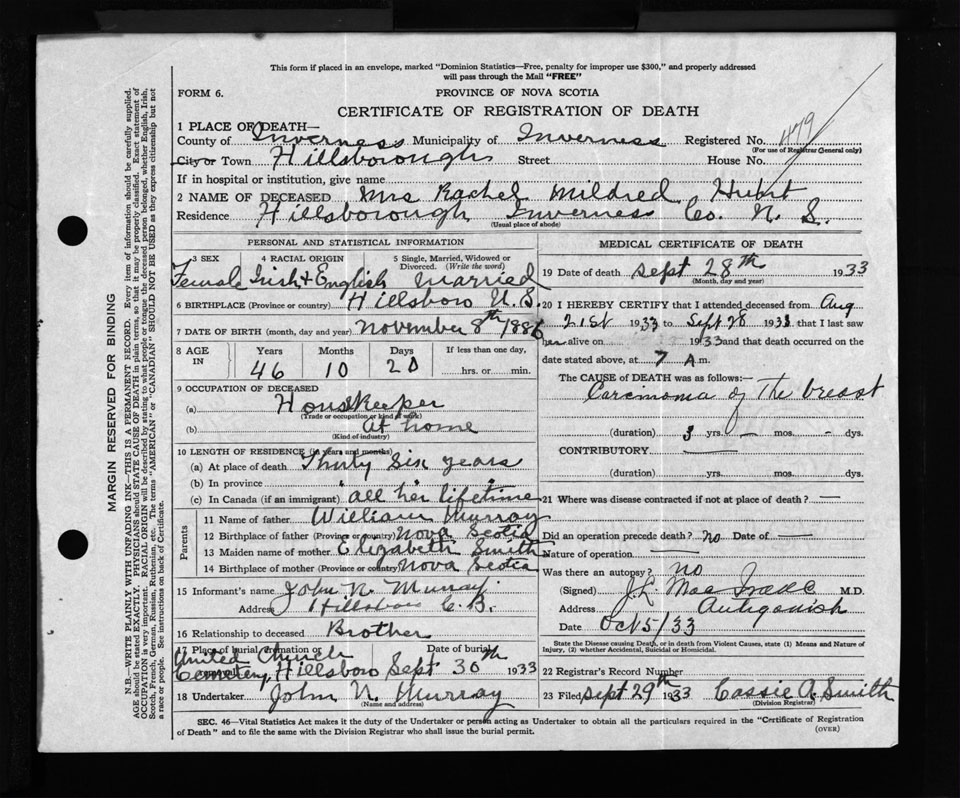 This form if placed in an envelope, marked "Dominion Statistics—Free, penalty for improper use $300," and properly addressed
will pass through the Mail "FREE"
FORM 6.
PROVINCE OF NOVA SCOTIA
CERTIFICATE OF REGISTRATION OF DEATH
1 PLACE OF DEATH—
County of Inverness Municipality of Inverness Registered No. 479
(For use of Registrar General only)
City or Town Hillsborough Street House No.
If in hospital or institution, give name
2 NAME OF DECEASED Mrs Rachel Mildred Hunt
Residence Hillsborough Inverness Co. N. S.
(Usual place of abode)
PERSONAL AND STATISTICAL INFORMATION
3 SEX 4 RACIAL ORIGIN 5 Single, Married, Widowed or Divorced. (Write the word)
Female Irish + English Married
6 BIRTHPLACE (Province or country) Hillsboro N.S.
7 DATE OF BIRTH (month, day and year) November 8th 1886
8 AGE IN Years Months Days If less than one day,
46 10 20 hrs. or min.
9 OCCUPATION OF DECEASED
(a) Houskeeper
(Trade or occupation or kind of work)
(b) At home
(Kind of industry)
10 LENGTH OF RESIDENCE (in years and months)
(a) At place of death Thirty Six years
(b) In province "
(c) In Canada (if an immigrant) all her lifetime
Parents
11 Name of father William Murray
12 Birthplace of father (Province or country) Nova Scotia
13 Maiden name of mother Elizabeth Smith
14 Birthplace of mother (Province or country) Nova Scotia
15 Informant's name John N. Murray
Address Hillsboro C.B.
16 Relationship to deceased Brother
17 Place of burial, cremation or Date of burial
United Church
Cemetery, Hillsboro Sept 30th 1933
18 Undertaker John N. Murray
(Name and address)
MEDICAL CERTIFICATE OF DEATH
19 Date of death Sept 28th 1933
(Month, day and year)
20 I HEREBY CERTIFY that I attended deceased from Aug
21st 1933 to Sept 28 1933 that I last saw
her alive on 1933 and that death occurred on the
date stated above, at 7 A m.
The CAUSE OF DEATH was as follows:—
Carcimoma of The breast
(duration) 3 yrs. — mos. - dys.
CONTRIBUTORY —
(duration) yrs. mos. dys.
21 Where was disease contracted if not at place of death? —
Did an operation precede death? no Date of —
Nature of operation —
Was there an autopsy? no
(Signed) J.L. MacIsaac M.D.
Address Antigonish
Date Oct 5/33
State the Disease causing Death, or in death from Violent Causes, state (1) Means and Nature of
Injury, (2) whether Accidental, Suicidal or Homicidal.
22 Registrar's Record Number
23 Filed Sept 29th 1933 Cassie A. Smith
(Division Registrar)
SEC. 46—Vital Statistics Act makes it the duty of the Undertaker or person acting as Undertaker to obtain all the particulars required in the "Certificate of Registration
of Death" and to file the same with the Division Registrar who shall issue the burial permit.
(OVER)
MARGIN RESERVED FOR BINDING
N.B.—WRITE PLAINLY WITH UNFADING INK—THIS IS A PERMANENT RECORD. Every item of information should be carefully supplied.
AGE should be stated EXACTLY. PHYSICIANS should STATE CAUSE OF DEATH in plain terms, so that it may be properly classified. Exact statement of
OCCUPATION is very important. RACIAL ORIGIN will be described by stating to what people or tongue the deceased person belonged, whether English, Irish,
Scotch, French, German, Russian, Ruthenian, etc. The terms "AMERICAN" or "CANADIAN" SHOULD NOT BE USED as they express citizenship but not
a race or people. See instructions on back of Certificate.